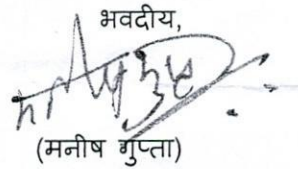 भवदीय,
(मनीष गुप्ता)